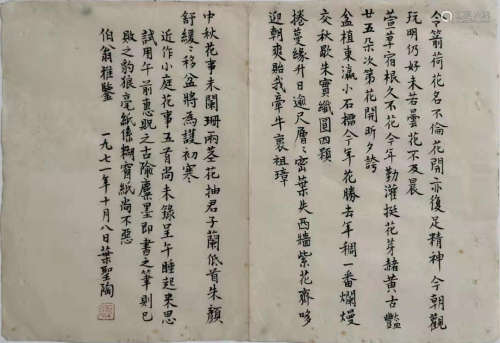 令箭荷花名不倫花開亦復足精神今朝觀
玩明仍好未若曇花不及晨
萱草宿根久不花今年勤灌挺花芽赭黃古豔
廿五朵次第花開昕夕誇
盆植東瀛小石榴今年花勝去年稠一番爛熳
交秋歇朱實纖圓四顆
捲蔓緣升日逾尺層層密葉失西牆紫花齊哆
迎朝爽貽我牽牛裹祖璋
中秋花事未闌珊兩莖花抽君子蘭低首朱顏
舒緩緩移盆將為護初寒
近作小庭花事五首尚未錄呈午睡起來思
試用午前惠貺之古隃麋墨即書之筆則已
敗之豹狼毫紙係糊窗紙尚不惡
伯翁雅鑒 一九七一年十月八日葉聖陶